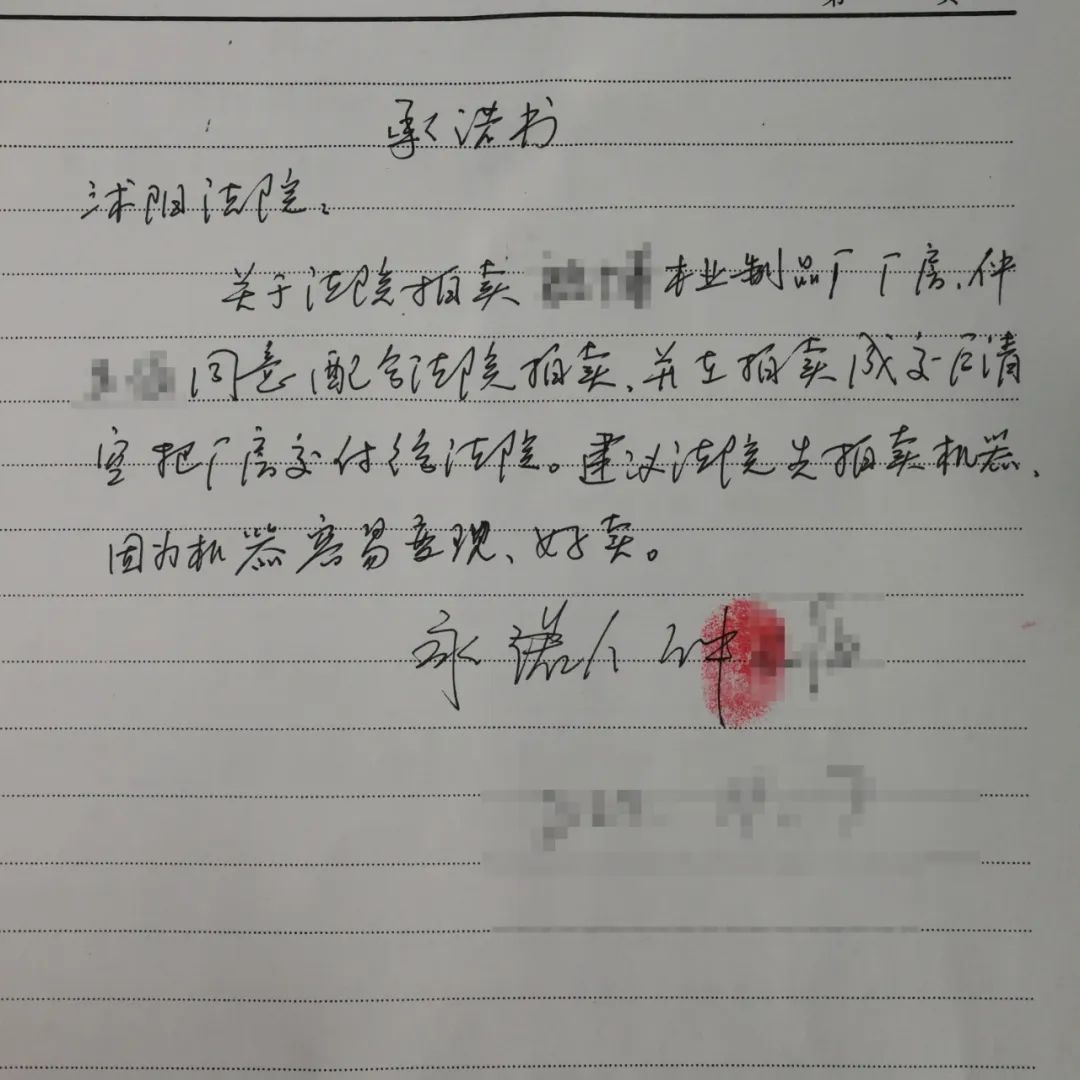 第 页
承诺书
沭阳法院：
关于法院拍卖 木业制品厂厂房、仲
同意配合法院拍卖、并在拍卖成交后清
空把厂房交付给法院。建议法院先拍卖机器、
因为机器容易变现、好卖。
承诺人 仲